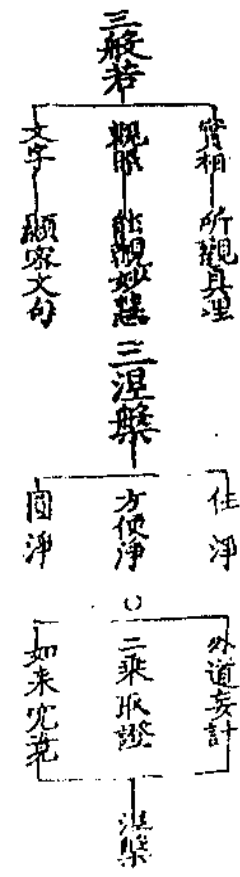 三般若
實相 所觀真理
觀照 能觀妙慧
文字 顯密文句
三涅槃
性淨
方便淨
圓淨
外道妄計
二乘取證
如来究竟
涅槃